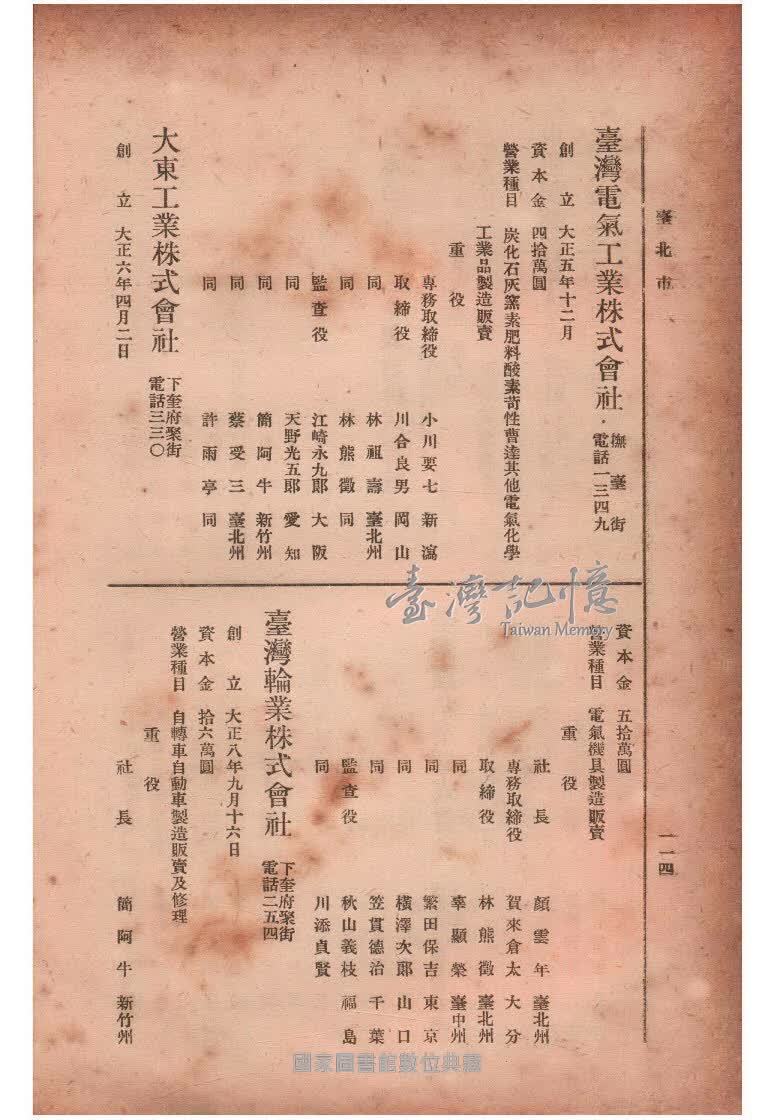 臺北市
一一四
臺灣電氣工業株式會社
撫臺街
電話一三四九
創立 大正五年十二月
資本金 四拾萬圓
營業種目 炭化石灰窒素肥料酸素苛性曹達其他電氣化學
工業品製造販賣
重役
專務取締役 小川要七 新瀉
取締役 川合良男 岡山
同 林祖壽 臺北州
同 林熊徵 同
監査役 江崎永九郞 大阪
同 天野光五郞 愛知
同 簡阿牛 新竹州
同 蔡受三 臺北州
同 許雨亭 同
大東工業株式會社
下奎府聚街
電話三三〇
創立 大正六年四月二日
資本金 五拾萬圓
營業種目 電氣機具製造販賣
重役
社長 顏雲年 臺北州
專務取締役 賀來倉太 大分
取締役 林熊徵 臺北州
同 辜顯榮 臺中州
同 繁田保吉 東京
同 橫澤次郞 山口
同 笠貫德治 千葉
監査役 秋山義枝 福島
同 川添貞賢
臺灣輪業株式會社
下奎府聚街
電話二五四
創立 大正八年九月十六日
資本金 拾六萬圓
營業種目 自轉車自動車製造販賣及修理
重役
社長 簡阿牛 新竹州
臺灣記憶
Taiwan Memory
國家圖書館數位典藏